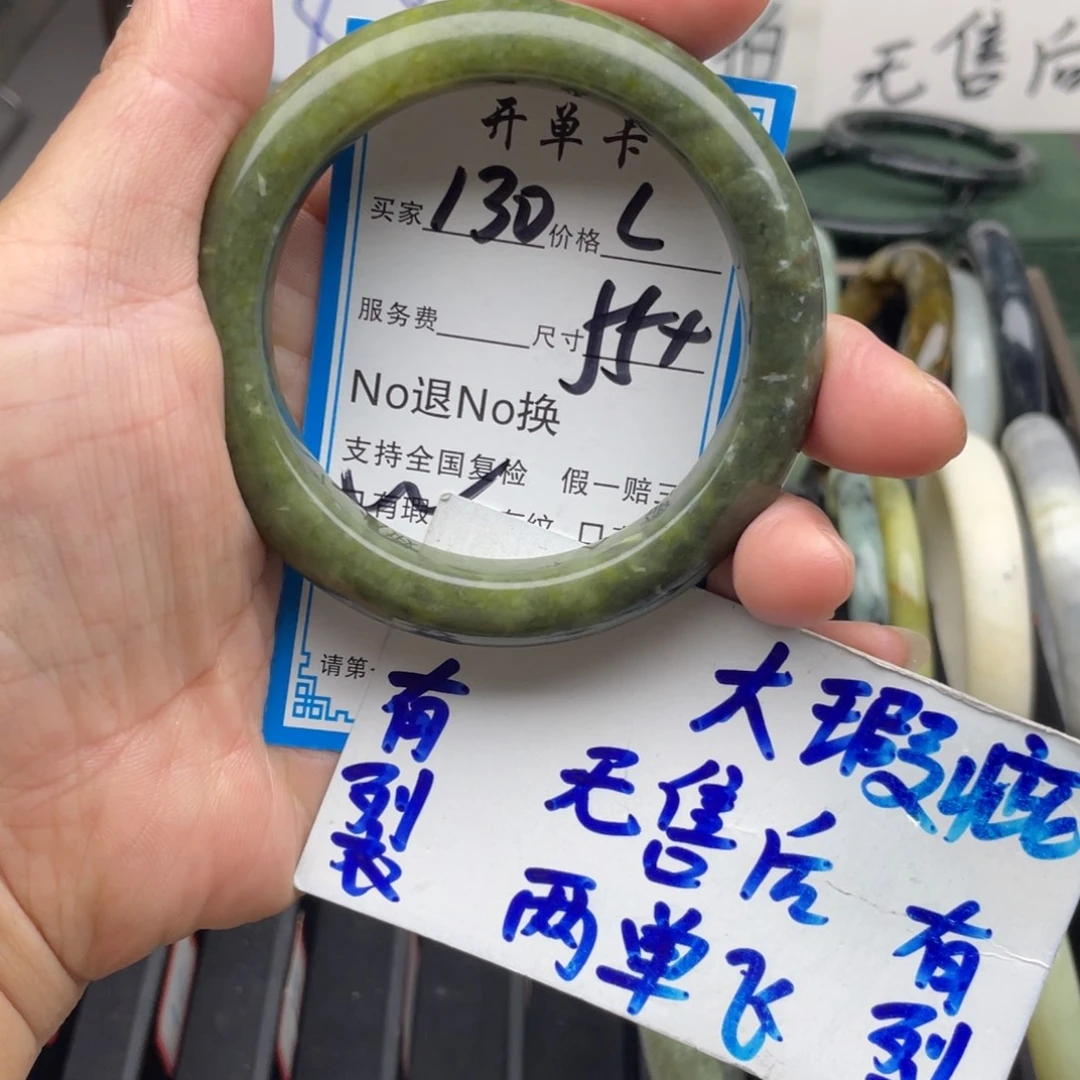 拍
无售后
开单卡
买家 130 价格 L
服务费 尺寸 554
No退No换
支持全国复检 假一赔三
口有瑕 有纹 口
请第
有裂
大瑕疵
无售后
两单飞
有裂